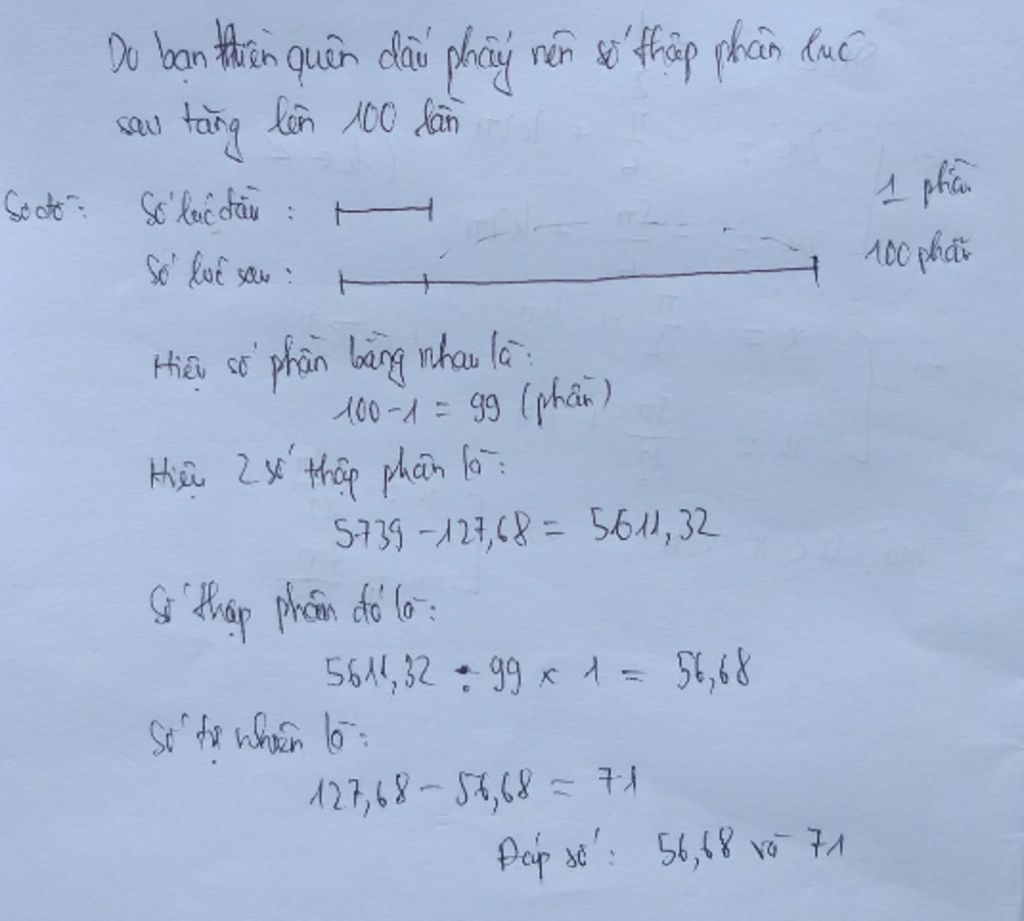 Do bạn thiên quên dấu phẩy nên số thập phân lúc
sau tăng lên 100 lần
Sơ đồ: Số lúc đầu : 1 phần
Số lúc sau : 100 phần
Hiệu số phần bằng nhau là:
100-1 = 99 (phần)
Hiệu 2 số thập phân là:
5739 - 127,68 = 5611,32
Số thập phân đó là:
5611,32 : 99 x 1 = 56,68
Số tự nhiên là:
127,68 - 56,68 = 71
Đáp số: 56,68 và 71